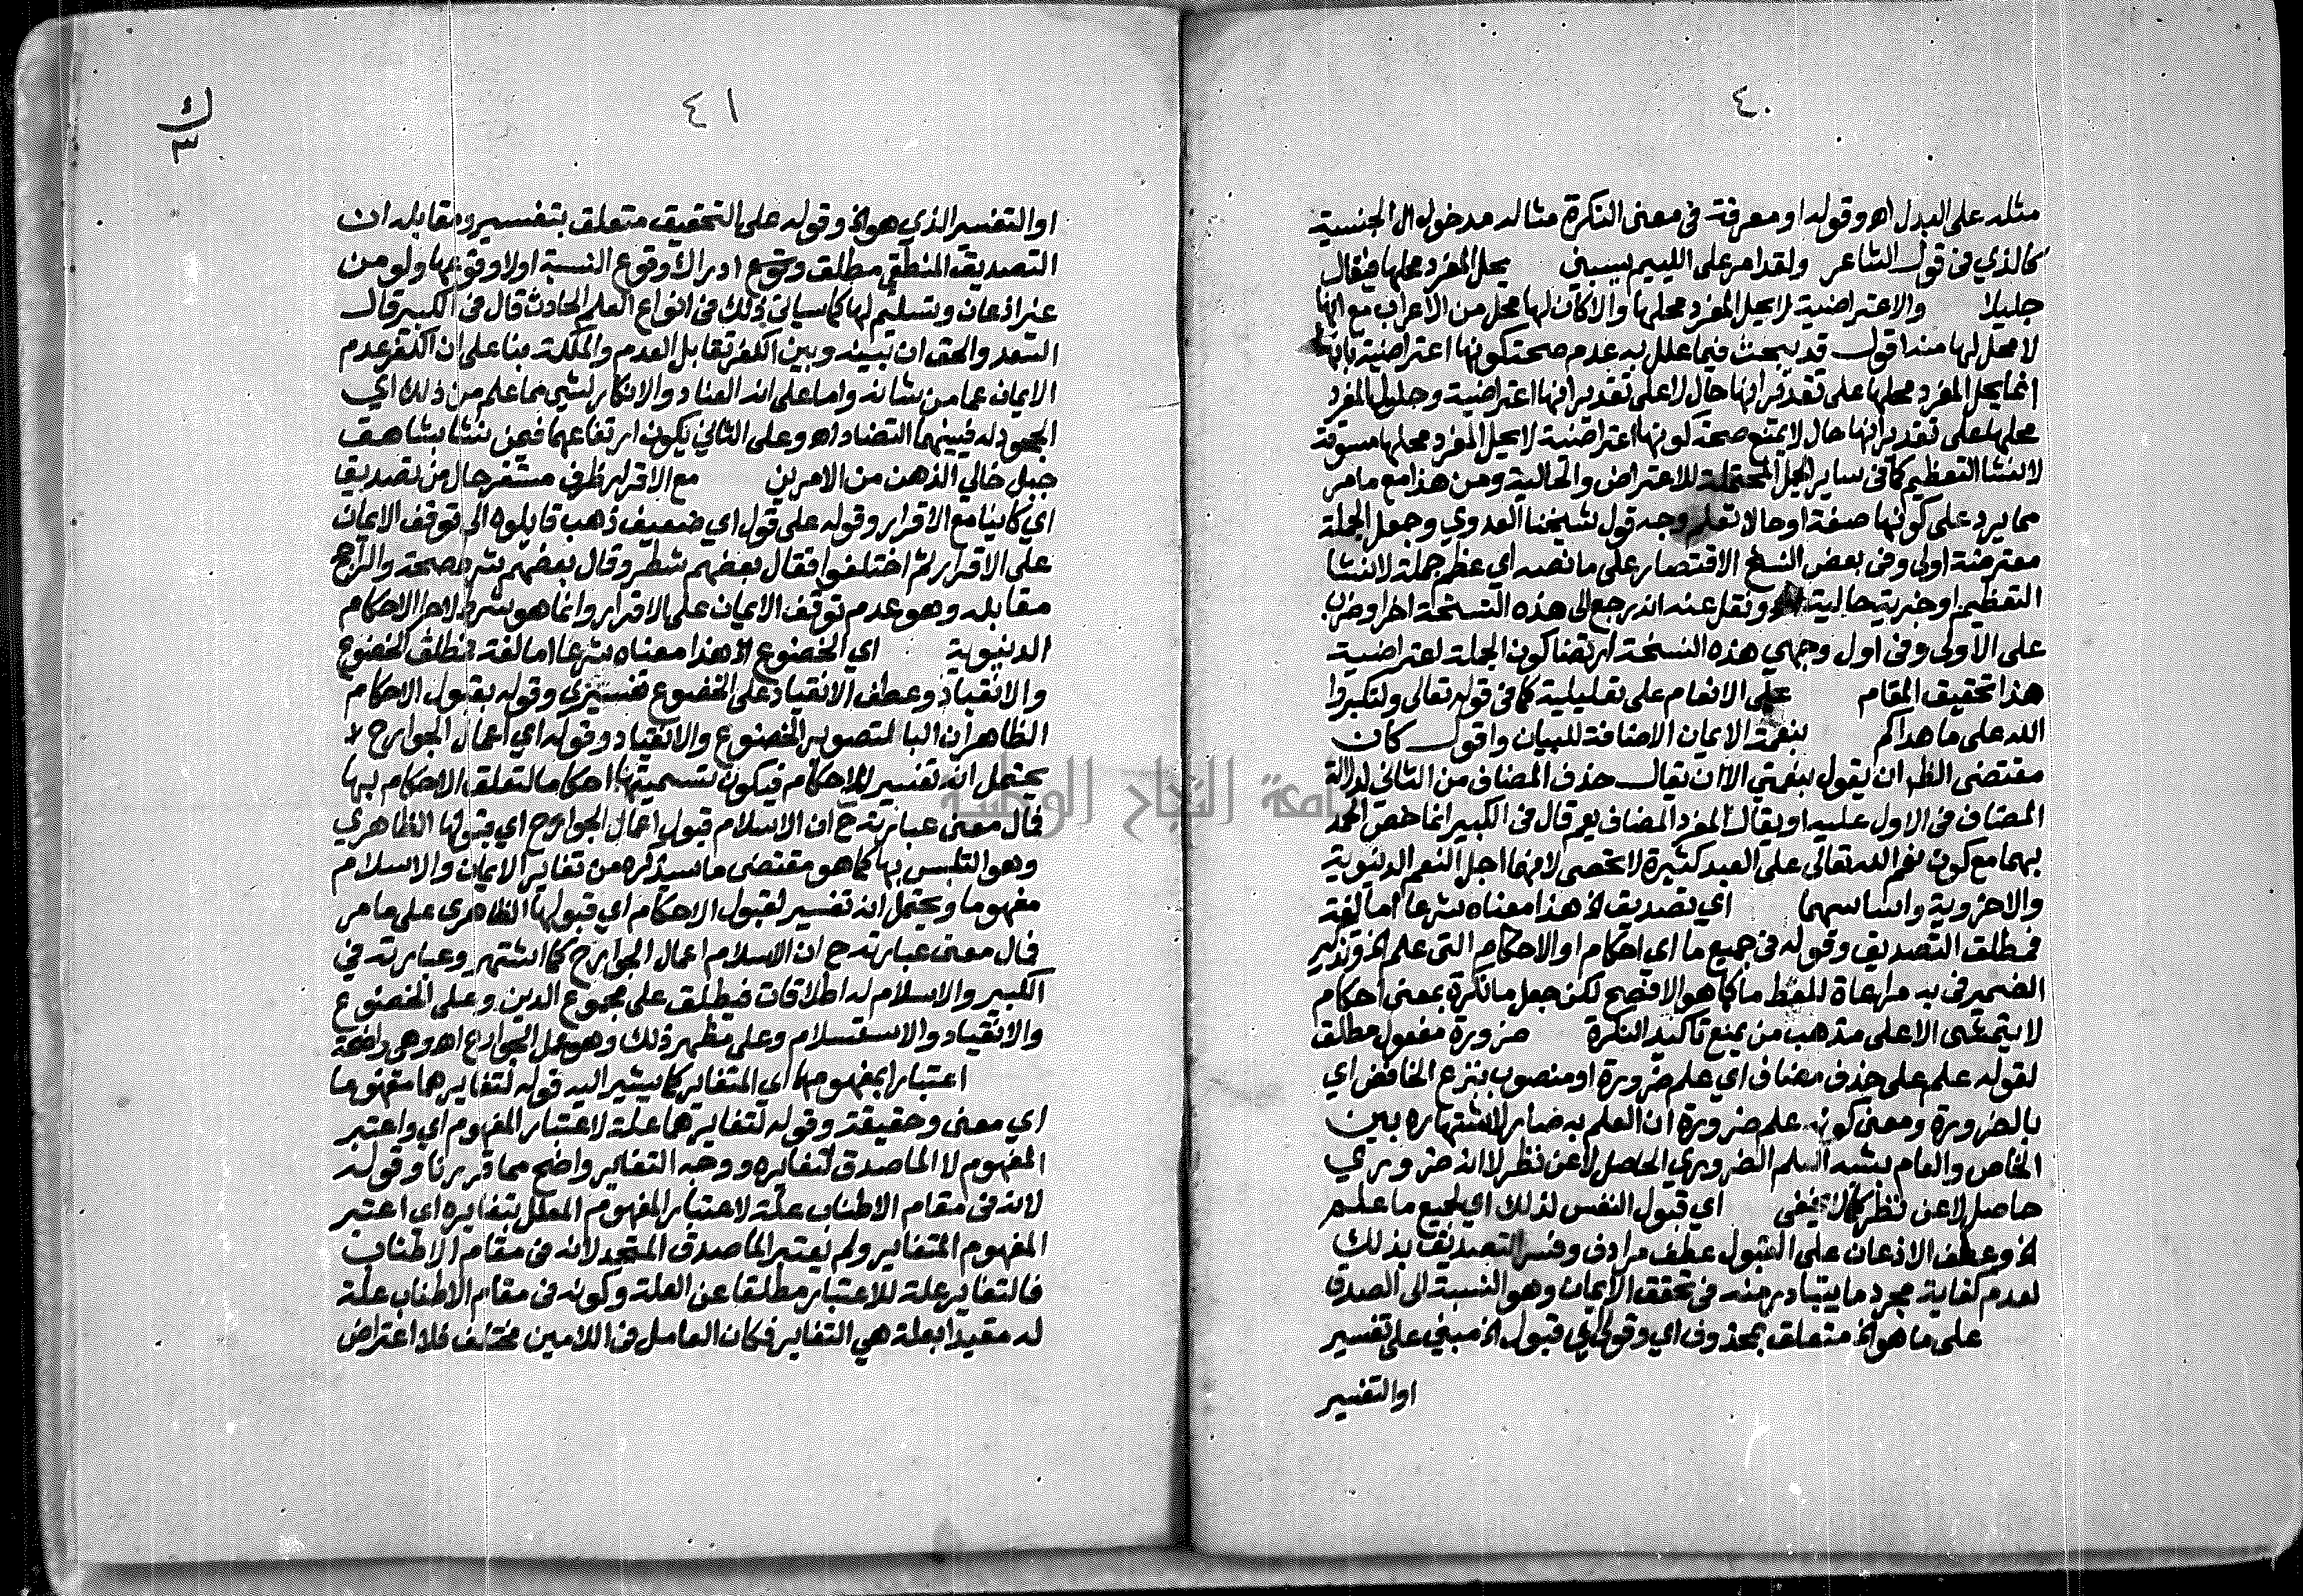 ٤٠
مثله على البدل اه وقوله او معرفة فى معنى النكرة مثاله مدخول ال الجنسية
كالذي فى قول الشاعر ولقد امر على اللييم يسبني يحل المفرد محلها فيقال
جليلا والاعتراضية لا يحل المفرد محلها والا كان لها محل من الاعراب مع انها
لا محل لها منه اقول قد يبحث فيما علل به عدم صحة كونها اعتراضية بانه
انما يحل المفرد محلها على تقدير انها حال لا على تقدير انها اعتراضية وحلول المفرد
محلها على تقدير انها حال لا يمنع صحة كونها اعتراضية لا يحل المفرد محلها مسوقة
لانشا التعظيم كما فى ساير الجمل المحتملة للاعتراض والحالية ومن هذا مع ما مر
مما يرد على كونها صفة او حالا تعلم وجه قول شيخنا العدوي وجعل الجملة
معترضة اولى وفى بعض النسخ الاقتصار على ما نصه اي عظم جملة لانشا
التعظيم او خبرية حالية اه ونقل عنه انه رجع الى هذه النسخة اخرا وضرب
على الاولى وفى اول وجهي هذه النسخة ارتضا كون الجملة اعتراضية
هذا تحقيق المقام على الانعام على تعليلية كما فى قوله تعالى ولتكبروا
الله على ما هداكم بنعمة الايمان الاضافة للبيان واقول كان
مقتضى الظ ان يقول بنعمتي الا ان يقال حذف المضاف من الثاني لدلالة
المضاف فى الاول عليه او يقال المفرد المضاف يعم قال فى الكبير انما خص الحمد
بهما مع كون نعم الله تعالى على العبد كثيرة لا تحصى لانهما اجل النعم الدنيوية
والاخروية واساسهما اي تصديق الخ هذا معناه شرعا اما لغة
فمطلق التصديق وقوله فى جميع ما اي احكام او الاحكام التى علم الخ وتذكير
الضمير فى به مراعاة للفظ ما كما هو الافصح لكن جعل ما نكرة بمعنى احكام
لا يتمشى الا على مذهب من يمنع تاكيد النكرة ضرورة مفعول مطلق
لقوله علم على حذف مضاف اي علم ضرورة او منصوب بنزع الخافض اي
بالضرورة ومعنى كونه علم ضرورة ان العلم به صار لاشتهاره بين
الخاص والعام يشبه العلم الضروري الحاصل لا عن نظر لا انه ضروري
حاصل لا عن نظر كما لا يخفى اي قبول النفس لذلك اي لجميع ما علم
الخ وعطف الاذعان على القبول عطف مرادف وفسر التصديق بذلك
لعدم كفاية مجرد ما يتبادر منه فى تحقق الايمان وهو النسبة الى الصدق
على ما هو الخ متعلق بمحذوف اي وقولي اي قبول الخ مبني على تفسير
او التفسير
٤١
ك
٣
او التفسير الذي هو الخ وقوله على التحقيق متعلق بتفسير ومقابله ان
التصديق المنطقى مطلق وقوع ادراك وقوع النسبة اولا وقوعها ولو من
غير اذعان وتسليم لها كما سياتى ذلك فى انواع العلم الحادث قال فى الكبير قال
السعد والحق ان بينه وبين الكفر تقابل العدم والملكة بنا على ان الكفر عدم
الايمان عما من شانه واما على انه العناد والانكار لشي مما علم من ذلك اي
الجحود له فبينهما التضاد اه وعلى الثاني يكون ارتفاعهما فيمن نشا بشاهق
جبل خالي الذهن من الامرين مع الاقرار ظرف مستقر حال من تصديق
اي كاينا مع الاقرار وقوله على قول اي ضعيف ذهب قايلوه الى توقف الايمان
على الاقرار ثم اختلفوا فقال بعضهم شطر وقال بعضهم شرط صحة والراجح
مقابله وهو عدم توقف الايمان على الاقرار وانما هو شرط لاجرا الاحكام
الدنيوية اي الخضوع الخ هذا معناه شرعا اما لغة فمطلق الخضوع
والانقياد وعطف الانقياد على الخضوع تفسيري وقوله بقبول الاحكام
الظاهر ان البا لتصوير الخضوع والانقياد وقوله اي اعمال الجوارح لا
يحتمل انه تفسير للاحكام فيكون تسميتها احكاما لتعلق الاحكام بها
فال معنى عبارته ح ان الاسلام قبول اعمال الجوارح اي قبولها الظاهري
وهو التلبس بها كما هو مقتضى ما سيذكره من تغاير الايمان والاسلام
مفهوما ويحتمل انه تفسير لقبول الاحكام اي قبولها الظاهرى على ما مر
فال معنى عبارته ح ان الاسلام اعمال الجوارح كما اشتهر وعبارته في
الكبير والاسلام له اطلاقات فيطلق على مجموع الدين وعلى الخضوع
والانقياد والاستسلام وعلى مظهر ذلك وهو عمل الجوارح اه وهى واضحة
اعتبارا بمفهومها اي المتغاير كما يشير اليه قوله لتغايرهما مفهوما
اي معنى وحقيقة وقوله لتغايرهما علة لاعتبار المفهوم اي واعتبر
المفهوم لا الماصدق لتغايره ووجه التغاير واضح مما قررنا وقوله
لانه فى مقام الاطناب علة لاعتبار المفهوم المعلل بتغايره اي اعتبر
المفهوم المتغاير ولم يعتبر الماصدق المتحد لانه فى مقام الاطناب
فالتغاير علة للاعتبار مطلقا عن العلة وكونه فى مقام الاطناب علة
له مقيدا بعلة هي التغاير فكان العامل فى اللامين مختلف فلا اعتراض
جامعة النجاح الوطنية